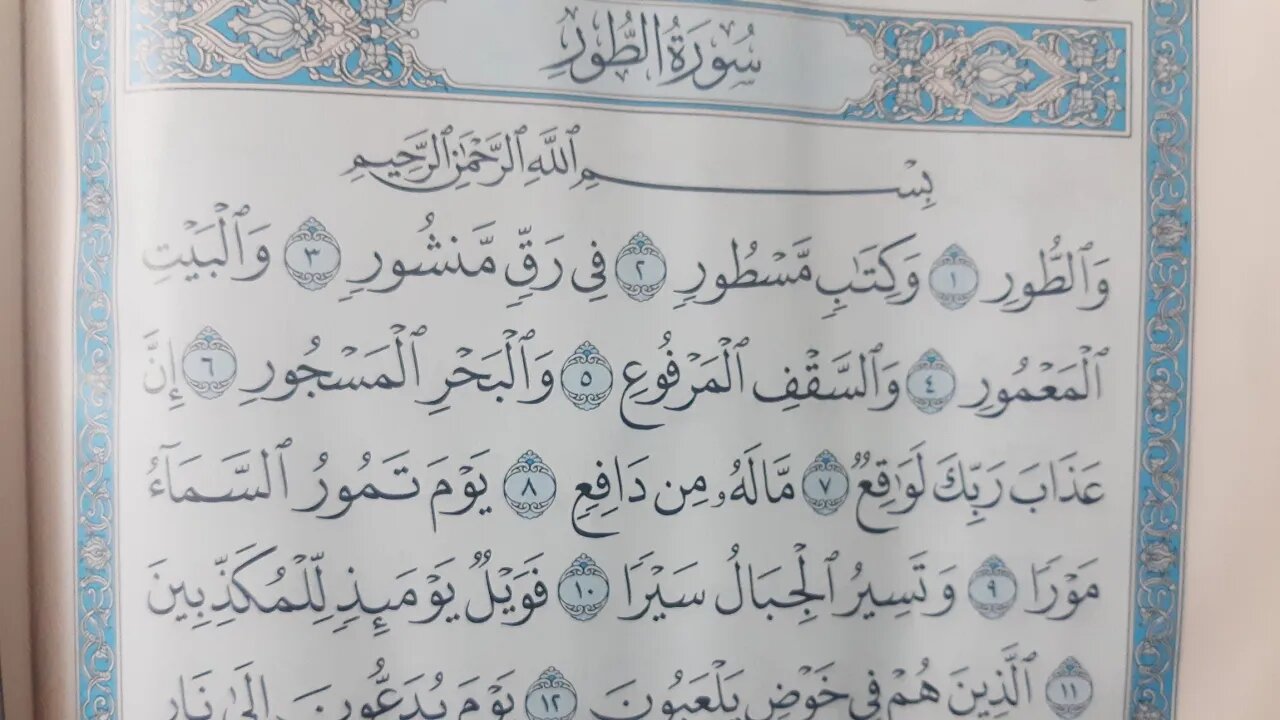 سُورَةُ الطُّورِ
بِسْمِ ٱللَّهِ ٱلرَّحْمَٰنِ ٱلرَّحِيمِ
وَٱلطُّورِ ١ وَكِتَٰبٖ مَّسۡطُورٖ ٢ فِي رَقّٖ مَّنشُورٖ ٣ وَٱلۡبَيۡتِ
ٱلۡمَعۡمُورِ ٤ وَٱلسَّقۡفِ ٱلۡمَرۡفُوعِ ٥ وَٱلۡبَحۡرِ ٱلۡمَسۡجُورِ ٦ إِنَّ
عَذَابَ رَبِّكَ لَوَٰقِعٞ ٧ مَّا لَهُۥ مِن دَافِعٖ ٨ يَوۡمَ تَمُورُ ٱلسَّمَآءُ
مَوۡرٗا ٩ وَتَسِيرُ ٱلۡجِبَالُ سَيۡرٗا ١٠ فَوَيۡلٞ يَوۡمَئِذٖ لِّلۡمُكَذِّبِينَ
١١ ٱلَّذِينَ هُمۡ فِي خَوۡضٖ يَلۡعَبُونَ ١٢ يَوۡمَ يُدَعُّونَ إِلَىٰ نَارِ